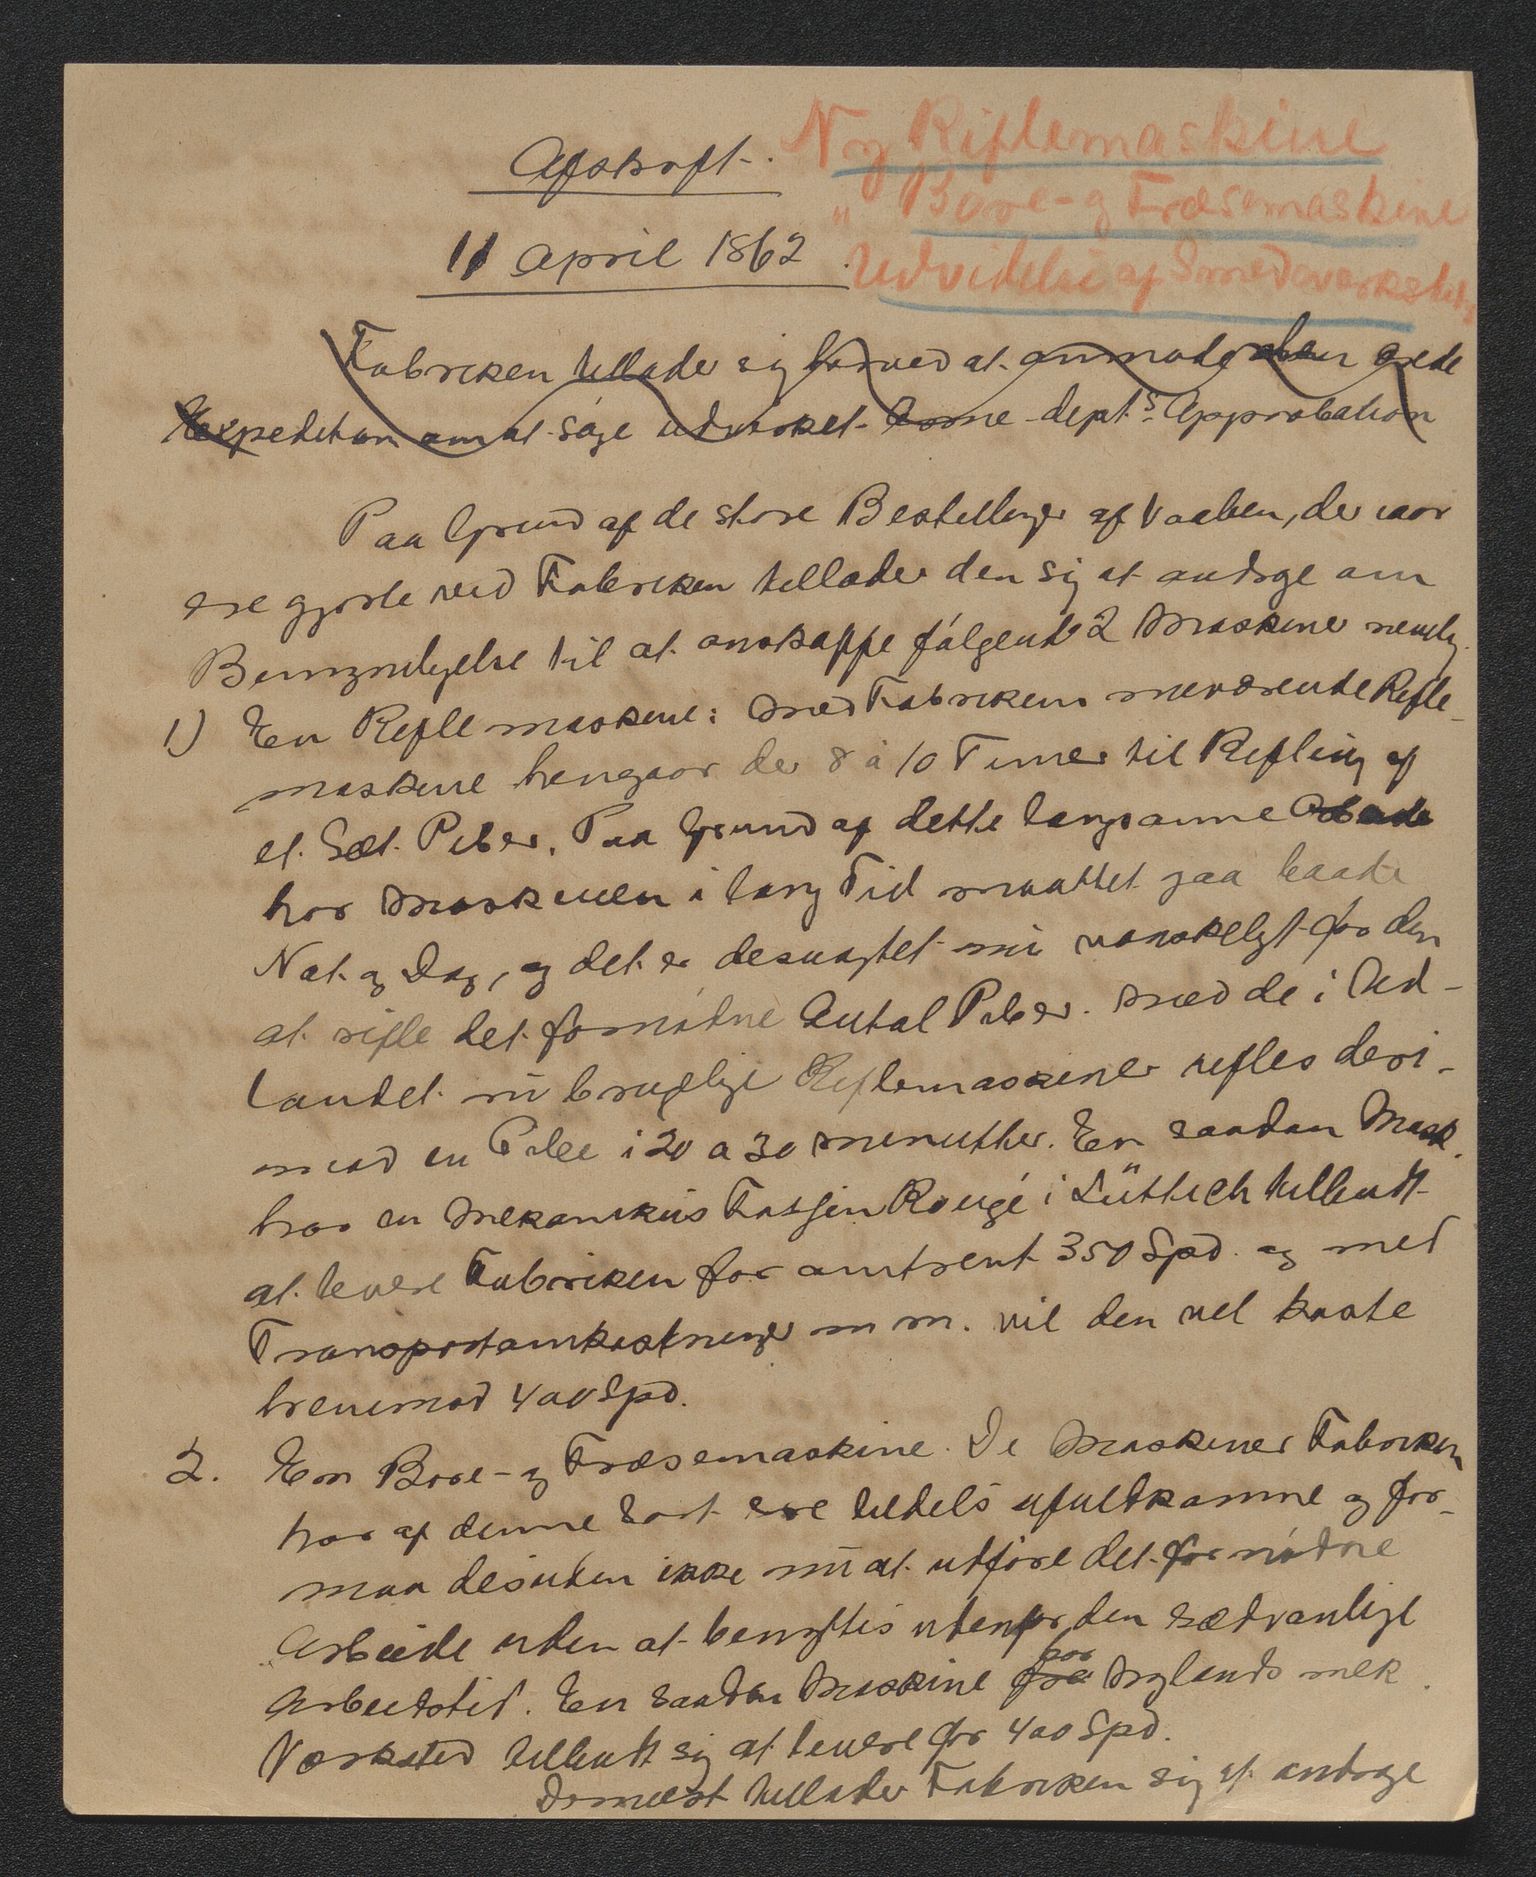 Afskrift.
Ny Riflemaskine
" Bore- og Fræsemaskine
Udvidelse af Smedeverkstedet
11 April 1862.
Fabriken tillader sig herved at anmode den ærede
Expedition om at søge udvirket Arme-dept.s Approbation
Paa Grund af de store Bestillinger af Vaaben, der iaar
ere gjorte ved Fabriken tillader den sig at andrage om
Bemyndigelse til at anskaffe følgende 2 Maskiner nemlig
1) En Riflemaskine: Med Fabrikens nuværende Rifle-
maskine hengaar der 8 à 10 Timer til Rifling af
et Sæt Piber. Paa Grund af dette langsomme Arbeide
har Maskinen i lang Tid maattet gaa baade
Nat og Dag, og det er desuagtet nu vanskeligt for den
at rifle det fornødne Antal Piber. Med de i Ud-
landet nu brugelige Riflemaskiner rifles deri-
mod en Pibe i 20 a 30 Minutter. En saadan Mask.
har en Mekanikus Falisse Rougé i Lüttich tilbudt
at levere Fabriken for omtrent 350 Spd. og med
Transportomkostninger m m. vil den vel koste
henimod 400 Spd.
2. En Bore- og Fræsemaskine. De Maskiner Fabriken
har af denne Sort ere tildels ufuldkomne og for-
maa desuden ikke nu at udføre det fornødne
Arbeide uden at benyttes udenfor den sædvanlige
Arbeidstid. En saadan Maskine fra har Nylands mek.
Værksted tilbudt sig at levere for 400 Spd.
Dernæst tillader Fabriken sig at andrage